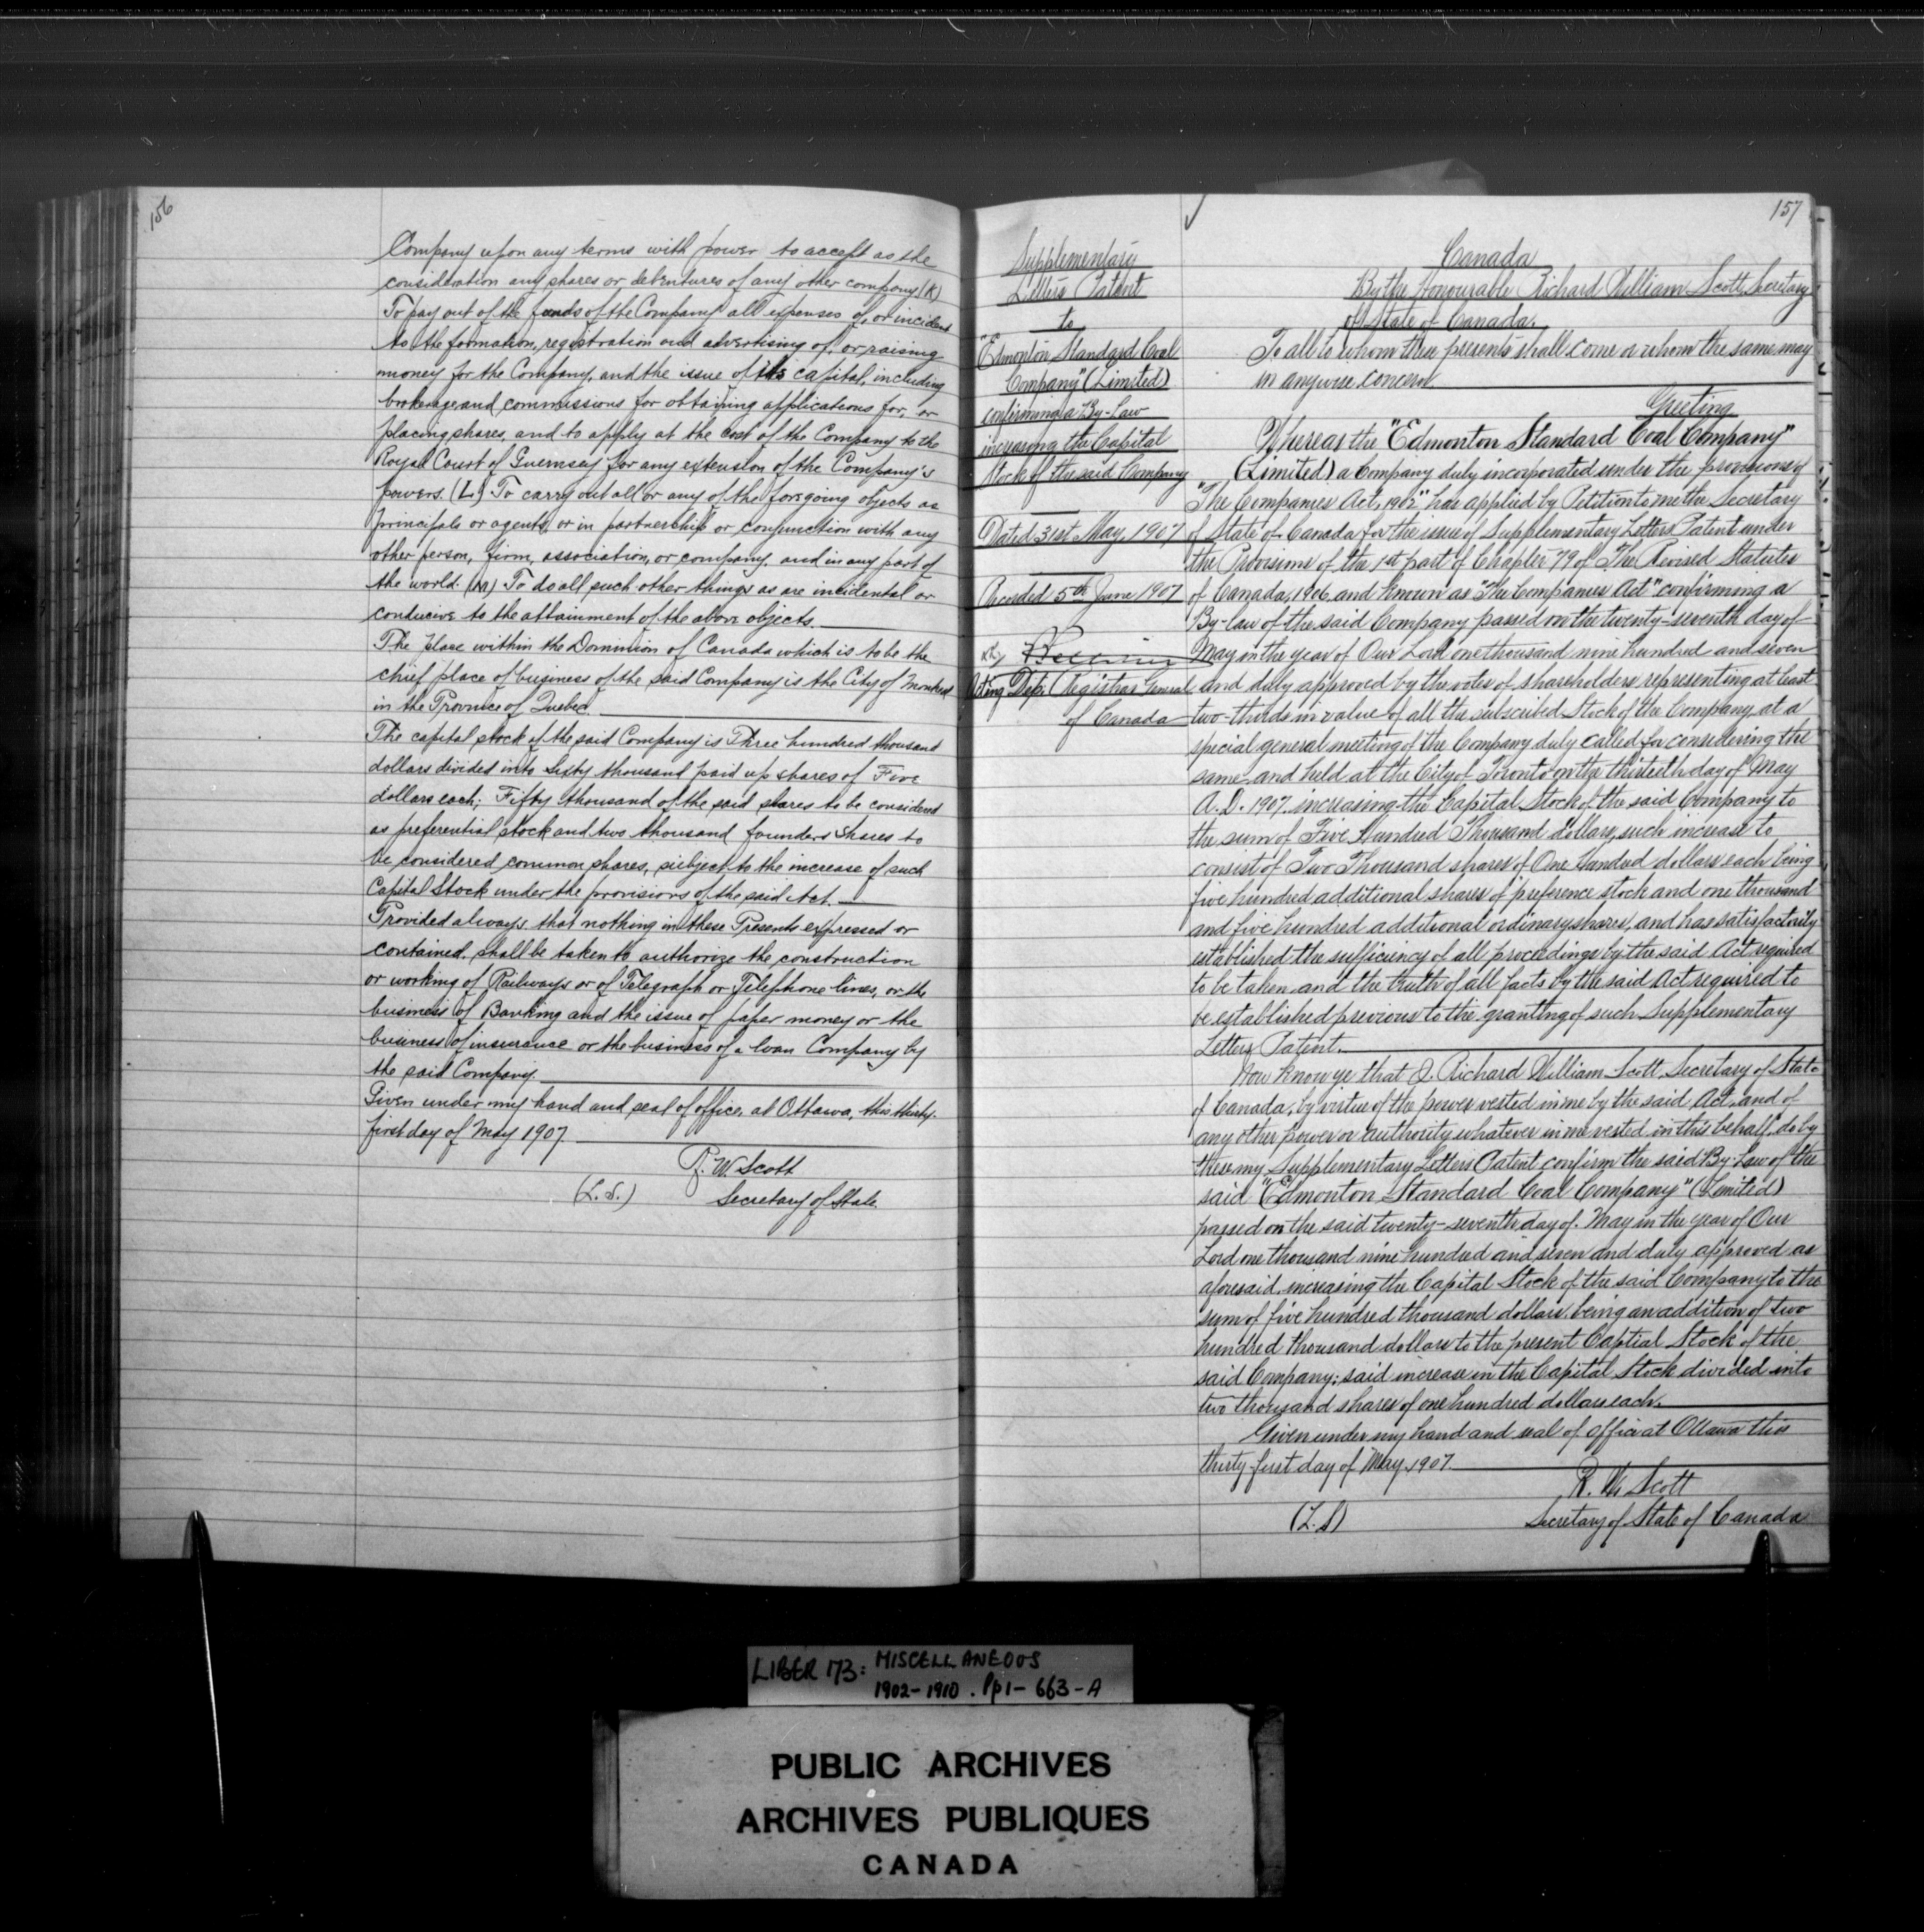 156
Company upon any terms with power to accept as the
consideration any shares or debentures of any other company (K)
To pay out of the funds of the Company all expenses of, or incident
to the formation, registration and advertising of, or raising
money for the Company, and the issue of its capital, including
brokerage and commissions for obtaining applications for, or
placing shares, and to apply at the cost of the Company to the
Royal Court of Guernsey for any extension of the Company's
powers. (L) To carry out all or any of the foregoing objects as
principals or agents, or in partnership or conjunction with any
other person, firm, association, or company, and in any part of
the world. (M) To do all such other things as are incidental or
conducive to the attainment of the above objects.
The place within the Dominion of Canada which is to be the
chief place of business of the said Company is the City of Montreal
in the Province of Quebec.
The capital stock of the said Company is Three hundred thousand
dollars divided into Sixty thousand paid up shares of Five
dollars each; Fifty thousand of the said shares to be considered
as preferential stock and two thousand founders shares to
be considered common shares, subject to the increase of such
Capital Stock under the provisions of the said Act.
Provided always that nothing in these Presents expressed or
contained shall be taken to authorize the construction
or working of Railways or of Telegraph or Telephone lines, or the
business of Banking and the issue of paper money or the
business of insurance or the business of a loan Company by
the said Company.
Given under my hand and seal of office, at Ottawa, this thirty-
first day of May 1907
R. W. Scott
(L.S.) Secretary of State
157
Supplementary
Letters Patent
to
"Edmonton Standard Coal
Company" (Limited)
confirming a By-Law
increasing the Capital
Stock of the said Company
Dated 31st May, 1907
Recorded 5th June 1907
Acting Dep. Registrar General
of Canada
Canada
By the Honourable Richard William Scott, Secretary
of State of Canada.
To all to whom these presents shall come or whom the same may
in anywise concern
Greeting
Whereas the "Edmonton Standard Coal Company"
(Limited) a Company duly incorporated under the provisions of
"The Companies Act, 1902" has applied by Petition to me the Secretary
of State of Canada for the issue of Supplementary Letters Patent under
the Provisions of the 1st part of Chapter 79 of The Revised Statutes
of Canada, 1906, and known as "The Companies Act" confirming a
By-law of the said Company passed on the twenty-seventh day of
May in the year of Our Lord one thousand nine hundred and seven
and duly approved by the votes of shareholders representing at least
two-thirds in value of all the subscribed Stock of the Company, at a
special general meeting of the Company duly called for considering the
same and held at the City of Toronto on the thirtieth day of May
A.D. 1907, increasing the Capital Stock of the said Company to
the sum of Five Hundred Thousand dollars, such increase to
consist of Two Thousand shares of One hundred dollars each being
five hundred additional shares of preference stock and one thousand
and five hundred additional ordinary shares, and has satisfactorily
established the sufficiency of all proceedings by the said Act required
to be taken and the truth of all facts by the said Act required to
be established previous to the granting of such Supplementary
Letters Patent.
Now Know ye that I. Richard William Scott Secretary of State
of Canada, by virtue of the power vested in me by the said Act, and of
any other power or authority whatever in me vested in this behalf, do by
these my Supplementary Letters Patent confirm the said By-Law of the
said "Edmonton Standard Coal Company" (Limited)
passed on the said twenty-seventh day of May in the year of Our
Lord one thousand nine hundred and seven and duly approved as
aforesaid, increasing the Capital Stock of the said Company to the
sum of five hundred thousand dollars, being an addition of two
hundred thousand dollars to the present Captial Stock of the
said Company; said increase in the Capital Stock divided into
two thousand shares of one hundred dollars each.
Given under my hand and seal of office at Ottawa this
thirty-first day of May, 1907.
R. W. Scott
(L.S) Secretary of State of Canada
LIBER 173: MISCELLANEOUS
1902-1910. Pp1-663-A
PUBLIC ARCHIVES
ARCHIVES PUBLIQUES
CANADA